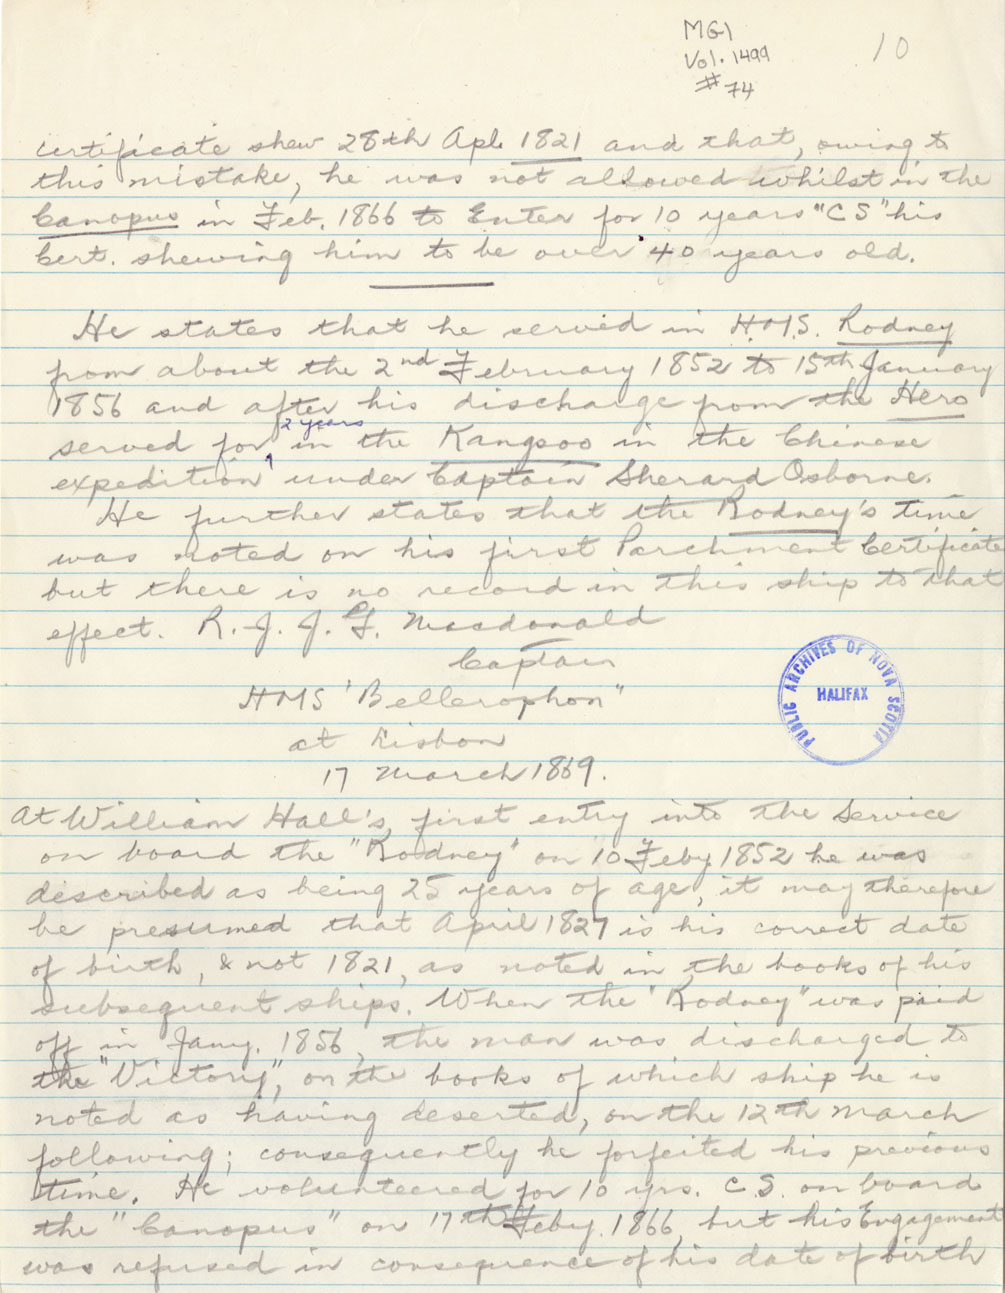 MG1
Vol. 1499
#74
10
certificate shew 28th Apl. 1821 and that, owing to
this mistake, he was not allowed whilst in the
Canopus in Feb. 1866 to Enter for 10 years "C S" his
Cert. shewing him to be over 40 years old.
He states that he served in H.M.S. Rodney
from about the 2nd February 1852 to 15th January
1856 and after his discharge from the Hero
served for 2 years in the Kangsoo in the Chinese
expedition under Captain Sherard Osborne.
He further states that the Rodney's time
was noted on his first Parchment Certificate
but there is no record in this ship to that
effect. R. J. J. G. Macdonald
Captain
HMS "Bellerophon"
at Lisbon
17 March 1869.
PUBLIC ARCHIVES OF NOVA SCOTIA
HALIFAX
At William Hall's, first entry into the Service
on board the "Rodney" on 10 Feby 1852 he was
described as being 25 years of age, it may therefore
be presumed that April 1827 is his correct date
of birth, & not 1821, as noted in the books of his
subsequent ships. When the "Rodney" was paid
off in Jany. 1856, the man was discharged to
the "Victory", on the books of which ship he is
noted as having deserted, on the 12th March
following; consequently he forfeited his previous
time. He volunteered for 10 yrs. C.S. on board
the "Canopus" on 17th Feby. 1866, but his Engagement
was refused in consequence of his date of birth